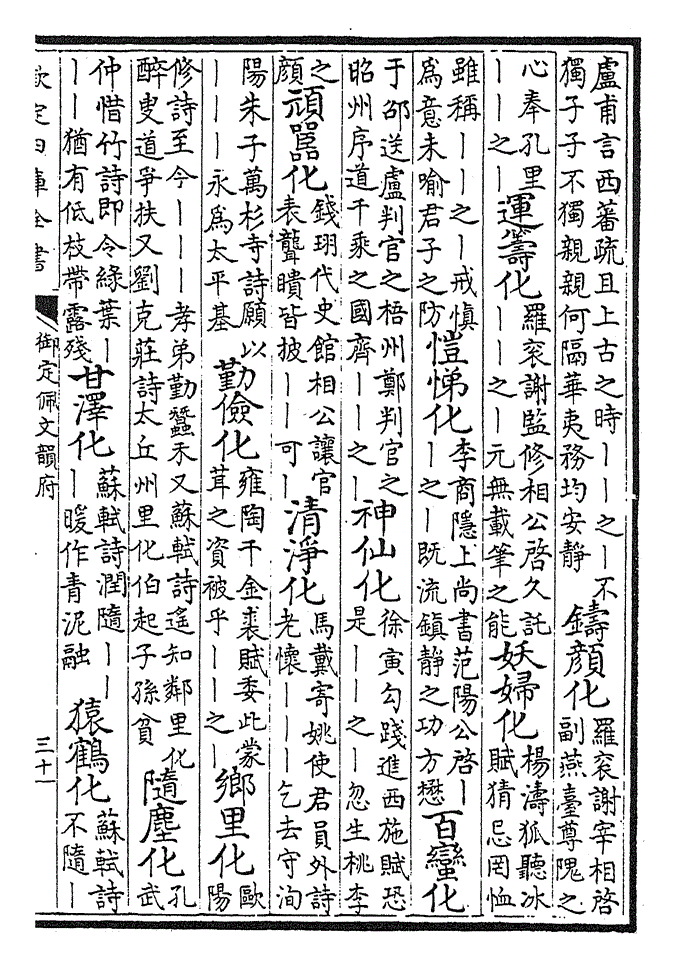 盧甫言西蕃疏且上古之時丨丨之丨不
獨子子不獨親親何隔華夷務均安静
鑄顔化
羅衮謝宰相啓
副燕臺尊隗之
心奉孔里
丨丨之丨
運籌化
羅衮謝監修相公啓久託
丨丨之丨元無載筆之能
妖婦化
楊濤狐聽冰
賦猜忌罔恤
雖稱丨丨之丨戒慎
爲意未喻君子之防
愷悌化
李商隱上尚書范陽公啓丨
丨之丨既流鎮静之功方懋
百蠻化
于邵送盧判官之梧州鄭判官之
昭州序道千乘之國齊丨丨之丨
神仙化
徐寅勾踐進西施賦恐
是丨丨之丨忽生桃李
之
顔
頑嚚化
錢珝代史館相公讓官
表聾瞶皆披丨丨可丨
清淨化
馬戴寄姚使君員外詩
老懷丨丨丨乞去守洵
陽朱子萬杉寺詩願以
丨丨丨永爲太平基
勤儉化
雍陶千金裘賦委此蒙
茸之資被乎丨丨之丨
鄉里化
歐
陽
修詩至今丨丨丨孝弟勤蠶禾又蘇軾詩遥知鄰里化
醉叟道爭扶又劉克莊詩太丘州里化伯起子孫貧
隨塵化
孔
武
仲惜竹詩即今緑葉丨
丨丨猶有低枝帶露殘
甘澤化
蘇軾詩潤隨丨丨
丨暖作青泥融
猿鶴化
蘇軾詩
不隨丨
欽定四庫全書
御定佩文韻府
三十一